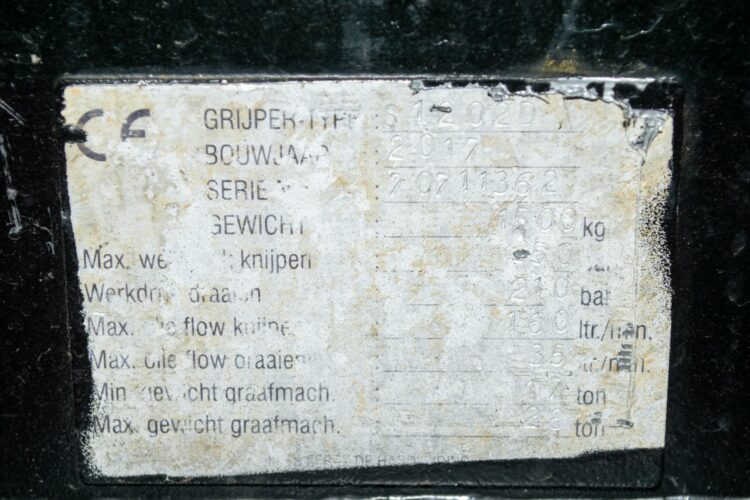 CE
GRIJPER-TYPE : S1202D
BOUWJAAR : 2017
SERIE : 20711362
GEWICHT : 1500 kg
Max. knijpen :
Werkdruk draaien : 210 bar
Max. olie flow knijpen : 160 ltr./min.
Max. olie flow draaien : 35 ltr./min.
Min. gewicht graafmach. ton
Max. gewicht graafmach. ton